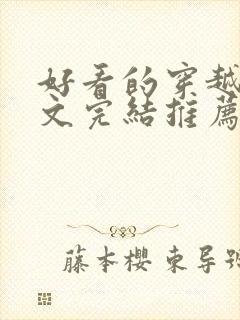 好看的穿越
文完結推薦
藤本櫻 東导